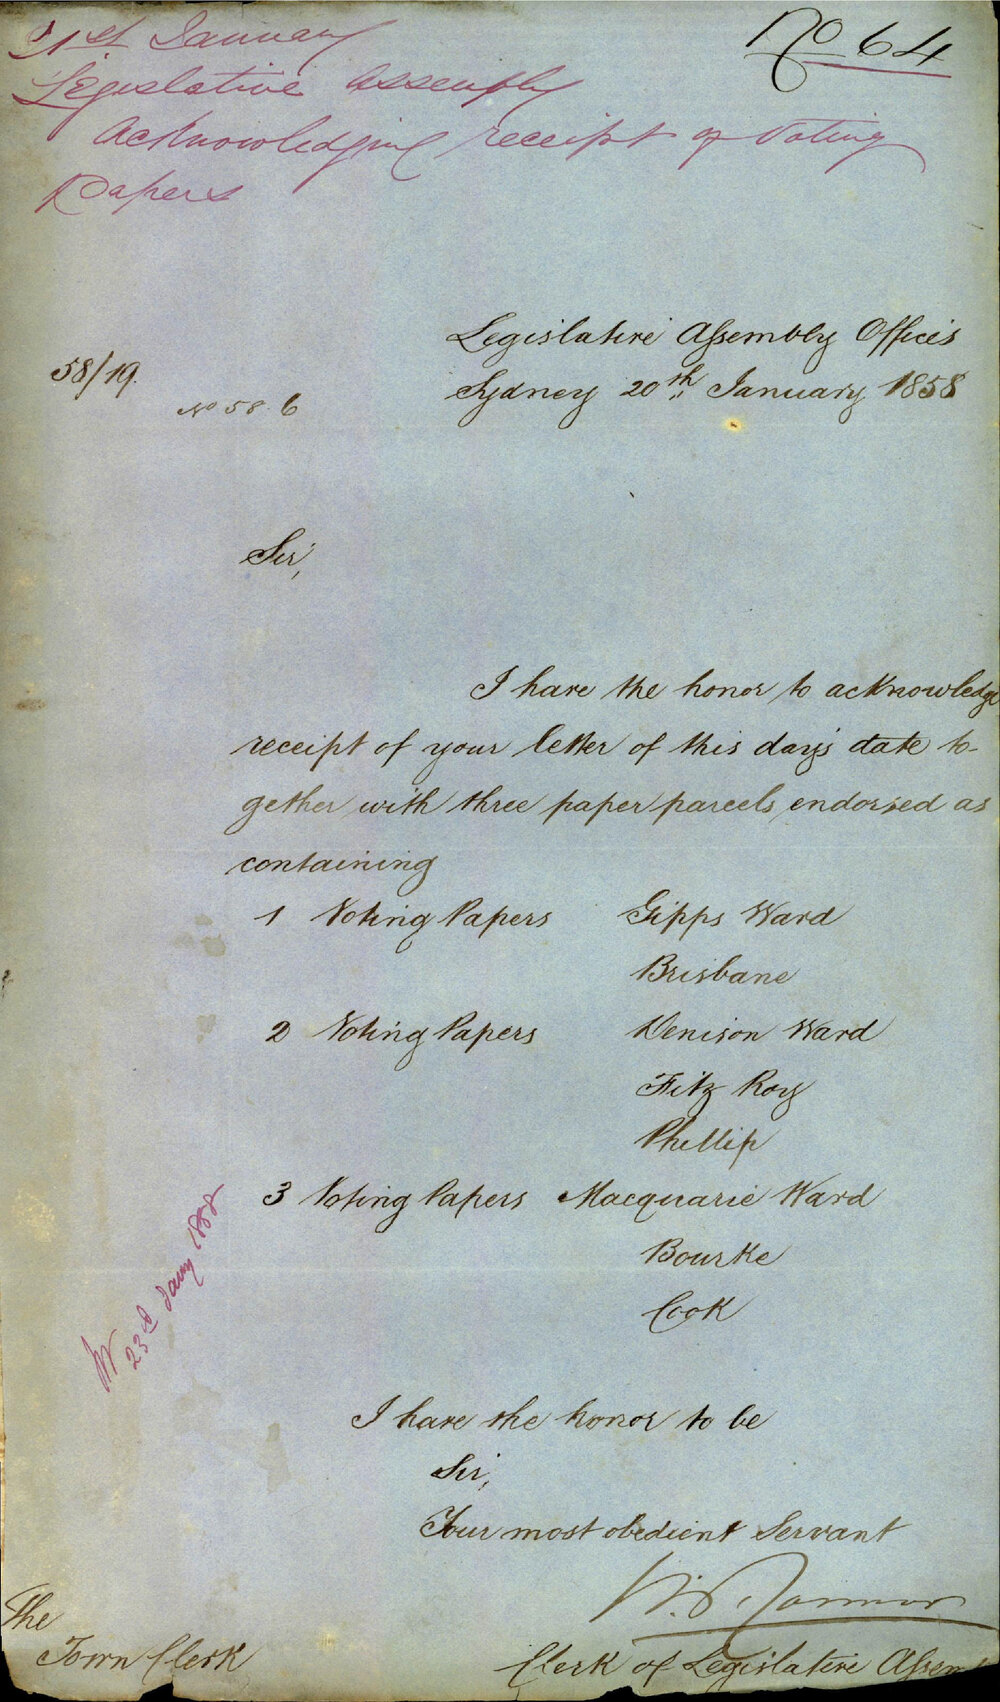 21st January
Legislative Assembly
Acknowledging receipt of Voting
Papers
No 64
Legislative Assembly Offices
58/19.
Sydney 20th January 1858
No 58.6
Sir,
I have the honor to acknowledge
receipt of your letter of this day's date to-
gether with three paper parcels endorsed as
containing
1 Voting Papers Gipps Ward
Brisbane
2 Voting Papers Denison Ward
Fitz Roy
Phillip
3 Voting Papers Macquarie Ward
Bourke
Cook
23rd Jany 1858
I have the honor to be
Sir,
Your most obedient Servant
The
Town Clerk
Clerk of Legislative Assem